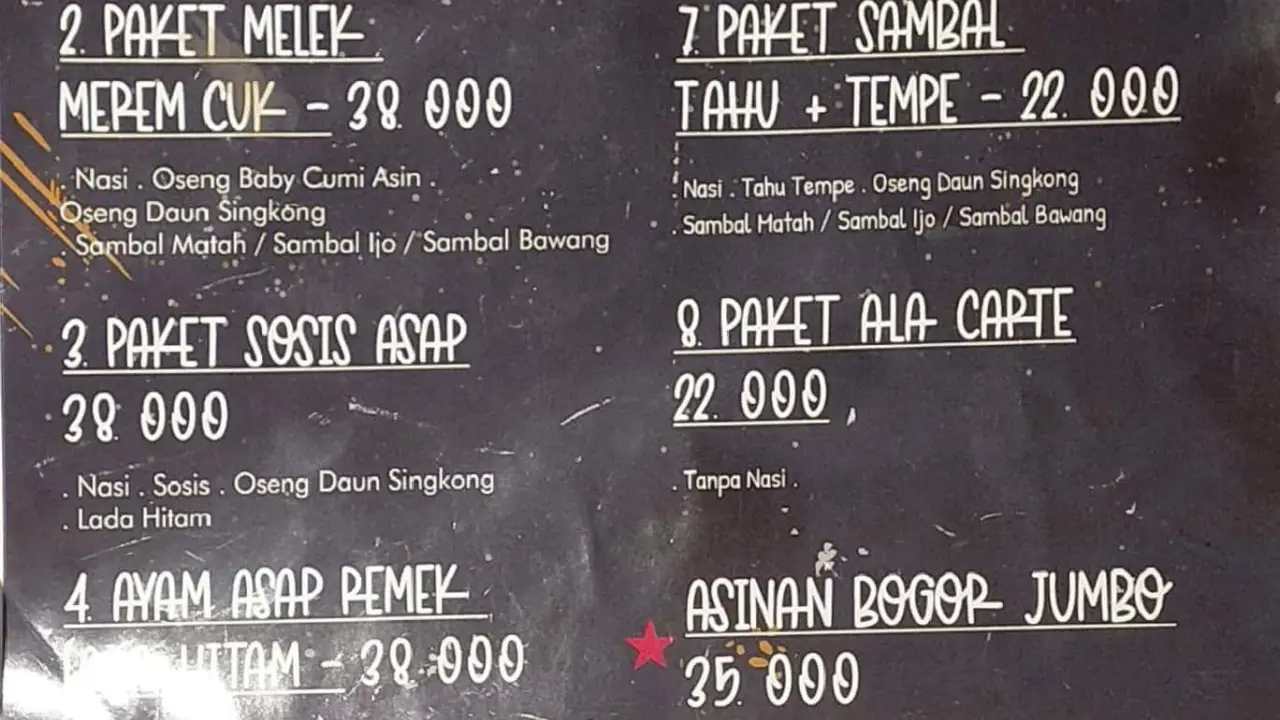 2. PAKET MELEK
MEREM CUK - 38. 000
. Nasi . Oseng Baby Cumi Asin .
Oseng Daun Singkong
. Sambal Matah / Sambal Ijo / Sambal Bawang
3. PAKET SOSIS ASAP
38. 000
. Nasi . Sosis . Oseng Daun Singkong
. Lada Hitam
4. AYAM ASAP REMEK
HITAM - 38. 000
7. PAKET SAMBAL
TAHU + TEMPE - 22. 000
. Nasi . Tahu Tempe . Oseng Daun Singkong
. Sambal Matah / Sambal Ijo / Sambal Bawang
8. PAKET ALA CARTE
22. 000
. Tanpa Nasi .
ASINAN BOGOR JUMBO
35. 000